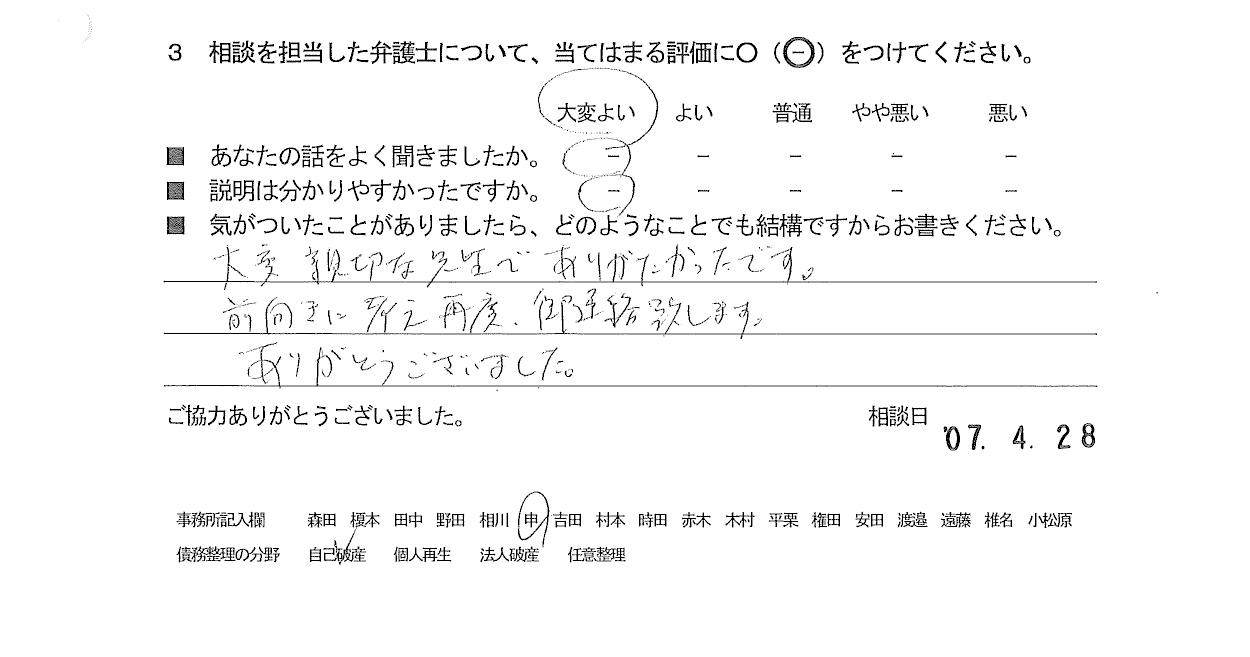 3 相談を担当した弁護士について、当てはまる評価に〇（㊀）をつけてください。
大変よい よい 普通 やや悪い 悪い
■ あなたの話をよく聞きましたか。 － － － － －
■ 説明は分かりやすかったですか。 － － － － －
■ 気がついたことがありましたら、どのようなことでも結構ですからお書きください。
大変親切な先生でありがたかったです。
前向きに考え再度、御連絡致します。
ありがとうございました。
ご協力ありがとうございました。 相談日
'07. 4. 28
事務所記入欄 森田 榎本 田中 野田 相川 申 吉田 村本 時田 赤木 木村 平栗 権田 安田 渡邉 遠藤 椎名 小松原
債務整理の分野 自己破産 個人再生 法人破産 任意整理